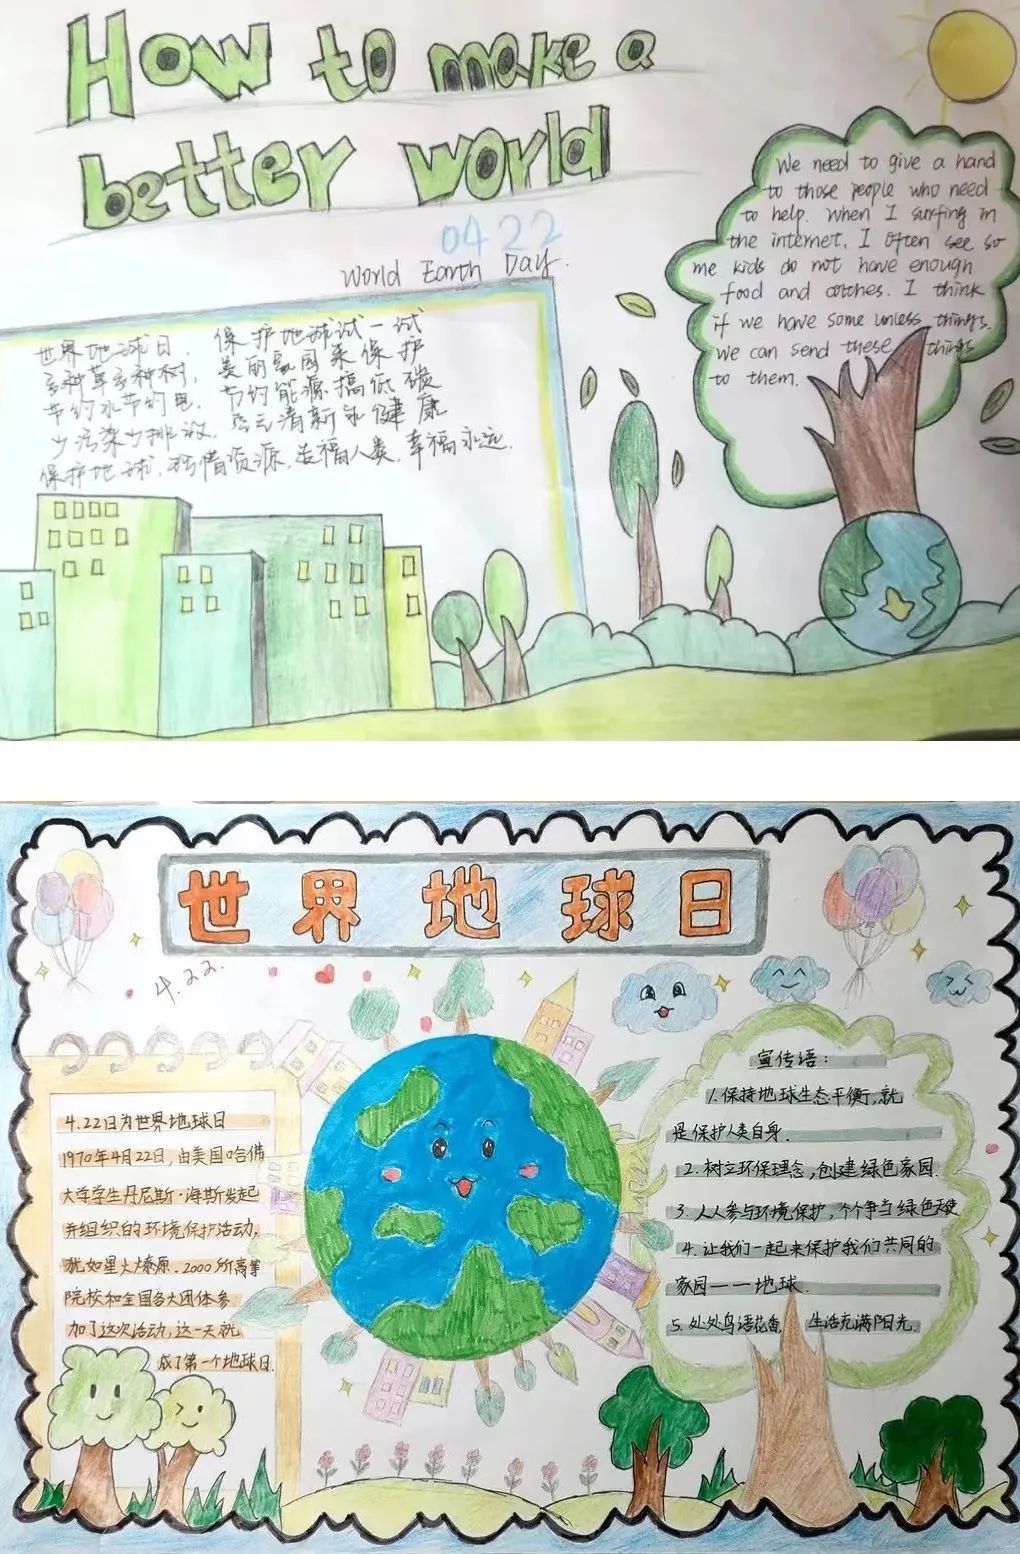 How to make a
better world
0422
World Earth Day.
We need to give a hand
to those people who need
to help. When I surfing in
the internet, I often see so
me kids do not have enough
food and clothes. I think
if we have some unless things.
we can send these things
to them.
世界地球日, 保护地球试一试
多种草多种树, 美丽家园来保护
节约水节约电, 节约能源搞低碳
少污染少排放, 清新 健康
保护地球, 珍惜资源, 造福人类, 幸福永远.
世界地球日
4.22.
4.22日为世界地球日
1970年4月22日,由美国哈佛
大学学生丹尼斯·海斯发起
并组织的环境保护活动,
犹如星火燎原、2000所高等
院校和全国各大团体参
加了这次活动,这一天就
成了第一个地球日.
宣传语:
1.保持地球生态平衡,就
是保护人类自身.
2.树立环保理念,创建绿色家园.
3.人人参与环境保护,个个争当绿色天使
4.让我们一起来保护我们共同的
家园——地球.
5.处处鸟语花香, 生活充满阳光.